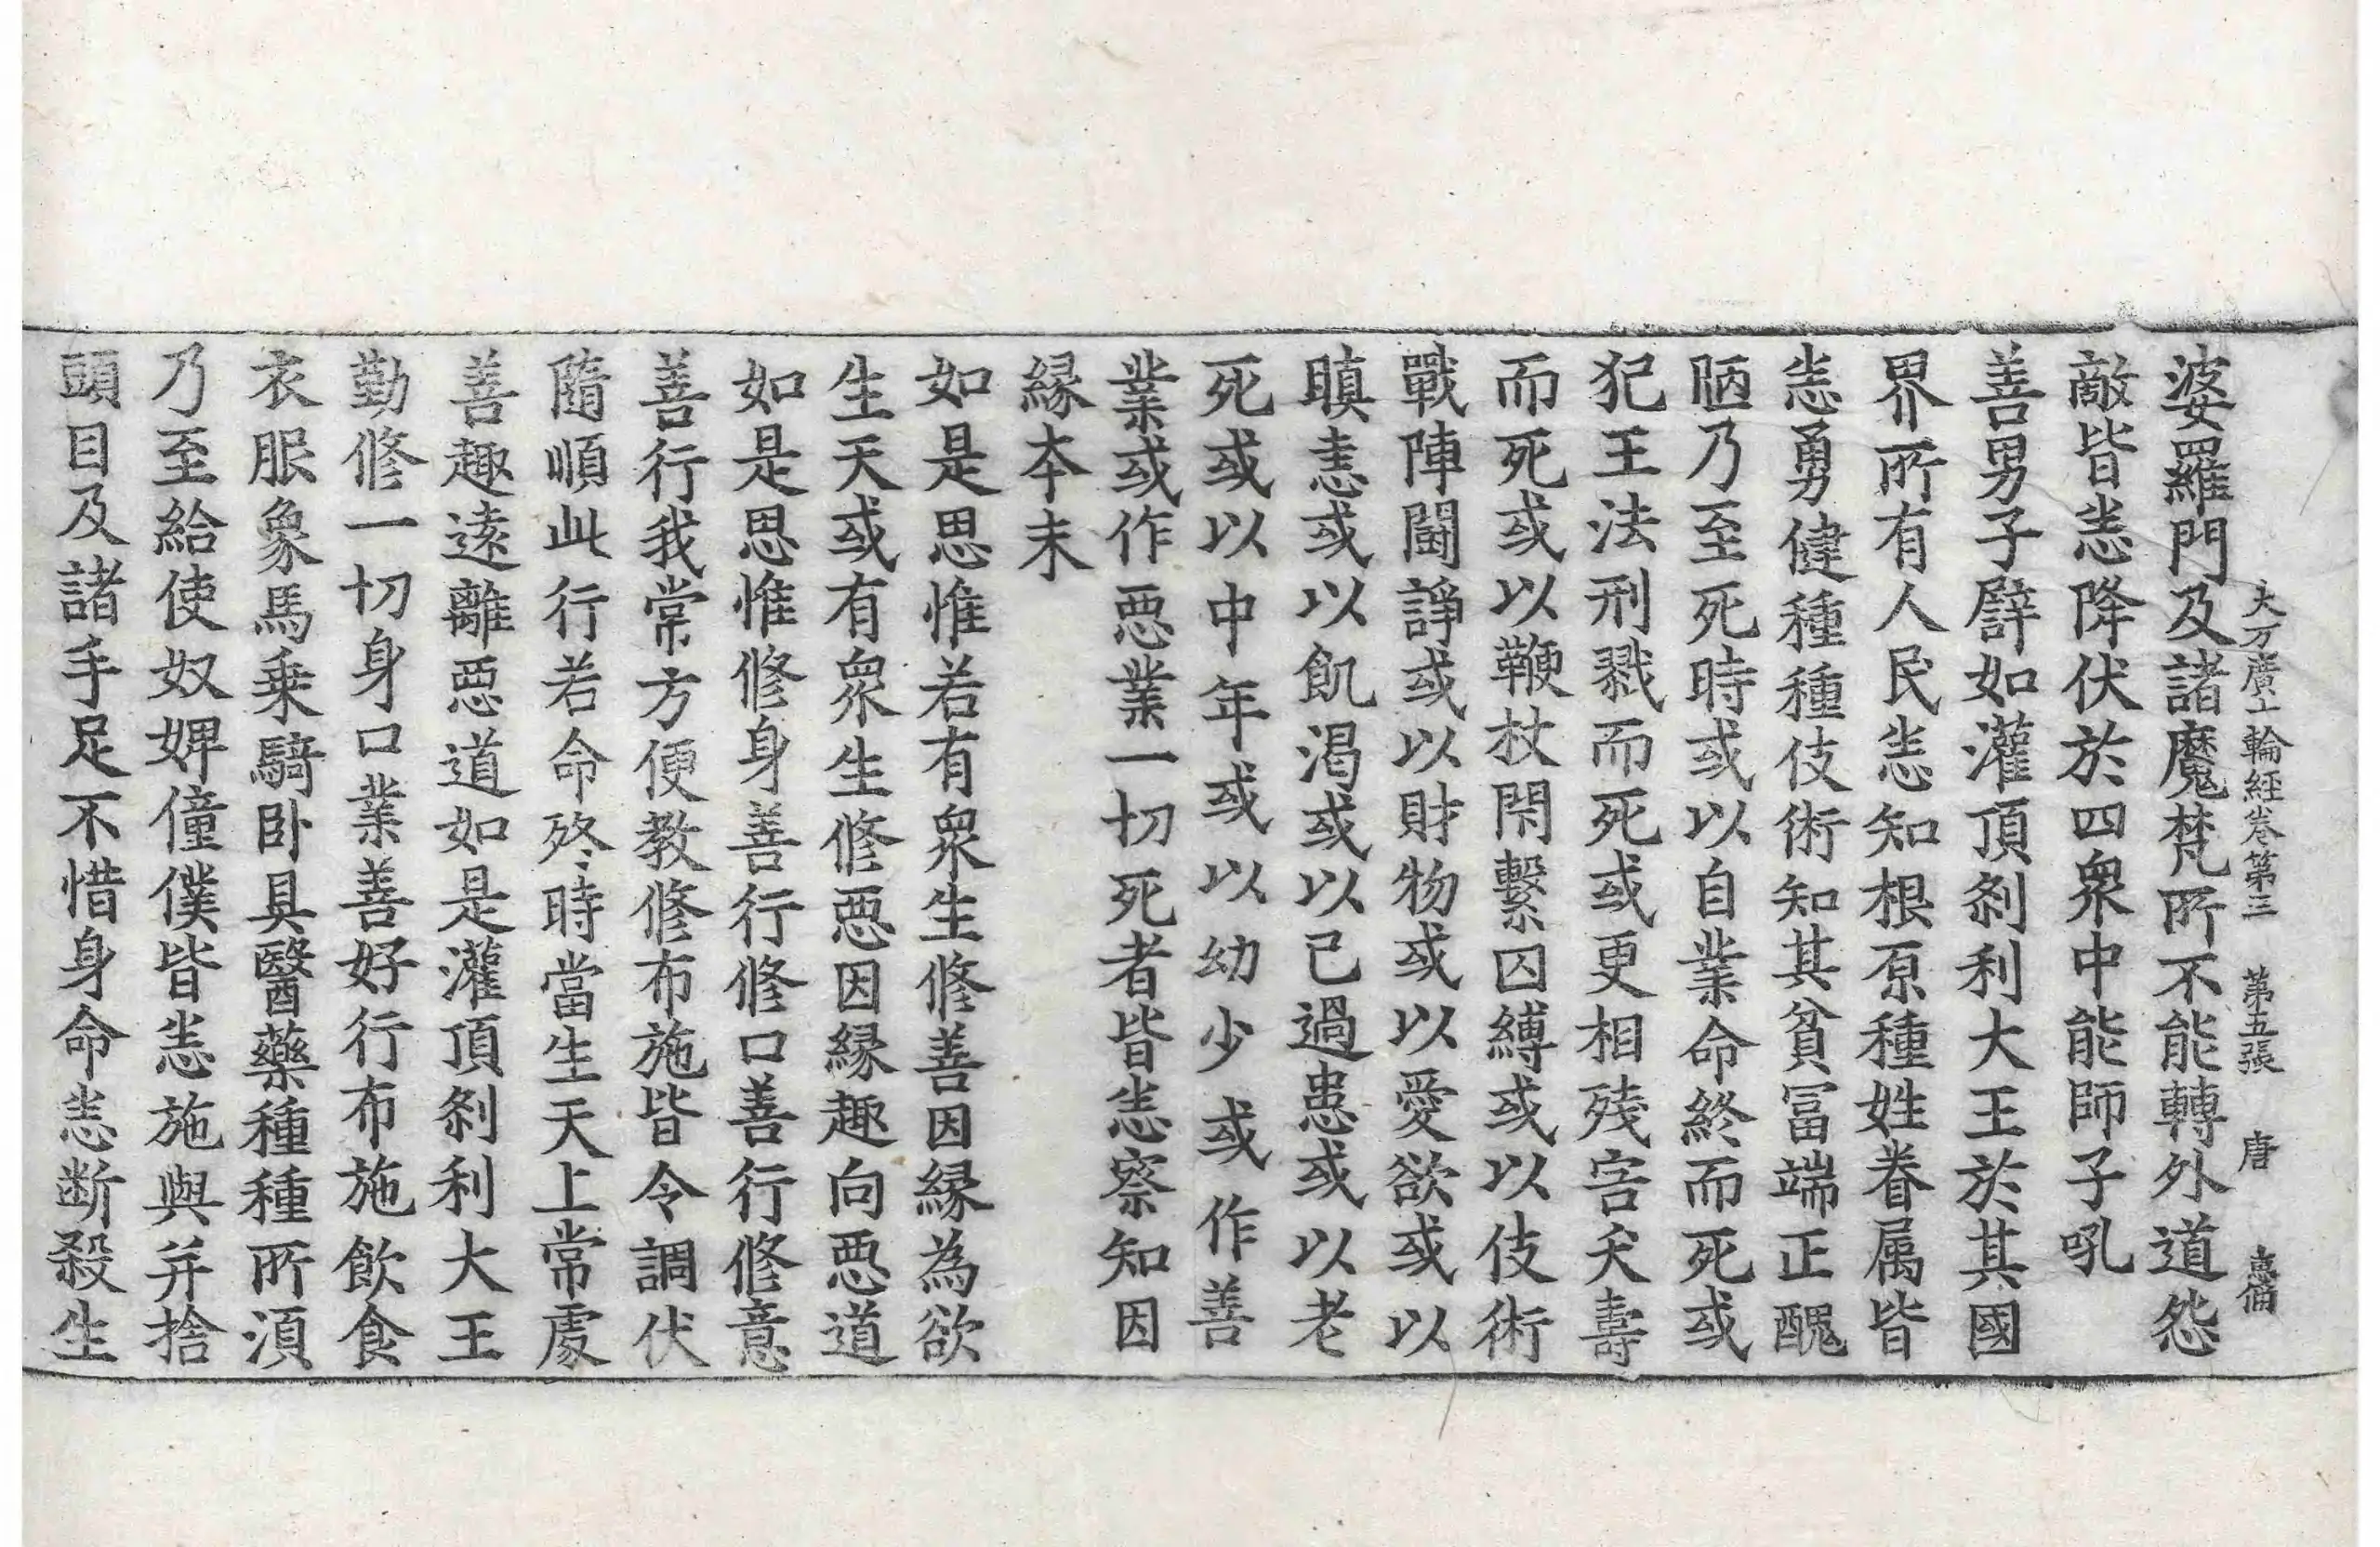 大方廣十輪經卷第三　第五張　唐　惠脩
婆羅門及諸魔梵所不能轉外道怨
敵皆悉降伏於四衆中能師子吼
善男子譬如灌頂剎利大王於其國
界所有人民悉知根原種姓眷属皆
悉勇健種種伎術知其貧冨端正醜
陋乃至死時或以自業命終而死或
犯王法刑戮而死或更相殘害夭壽
而死或以鞭杖閇繫囚縛或以伎術
戰陣鬪諍或以財物或以愛欲或以
瞋恚或以飢渴或以己過患或以老
死或以中年或以幼少或作善
業或作惡業一切死者皆悉察知因
縁本末
如是思惟若有衆生修善因縁為欲
生天或有衆生修惡因縁趣向惡道
如是思惟修身善行修口善行修意
善行我常方便教修布施皆令調伏
隨順此行若命終時當生天上常處
善趣遠離惡道如是灌頂剎利大王
勤修一切身口業善好行布施飲食
衣服象馬乗騎卧具醫藥種種所湏
乃至給使奴婢僮僕皆悉施與并捨
頭目及諸手足不惜身命悉断殺生